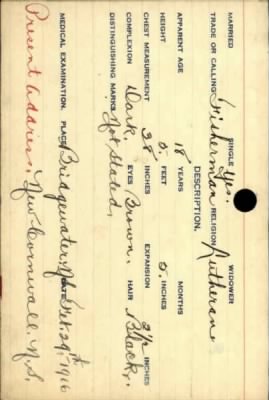 MARRIED SINGLE Yes. WIDOWER
TRADE OR CALLING Fisherman RELIGION Lutheran
DESCRIPTION.
APPARENT AGE 18 YEARS MONTHS
HEIGHT 5. FEET 5. INCHES
CHEST MEASUREMENT 38 INCHES EXPANSION 2½ INCHES
COMPLEXION Dark, EYES Brown. HAIR Black,
DISTINGUISHING MARKS Not Stated,
MEDICAL EXAMINATION. PLACE Bridgewater, N.S. 29th, 1916
Present Address. New Cornwall. N.S.